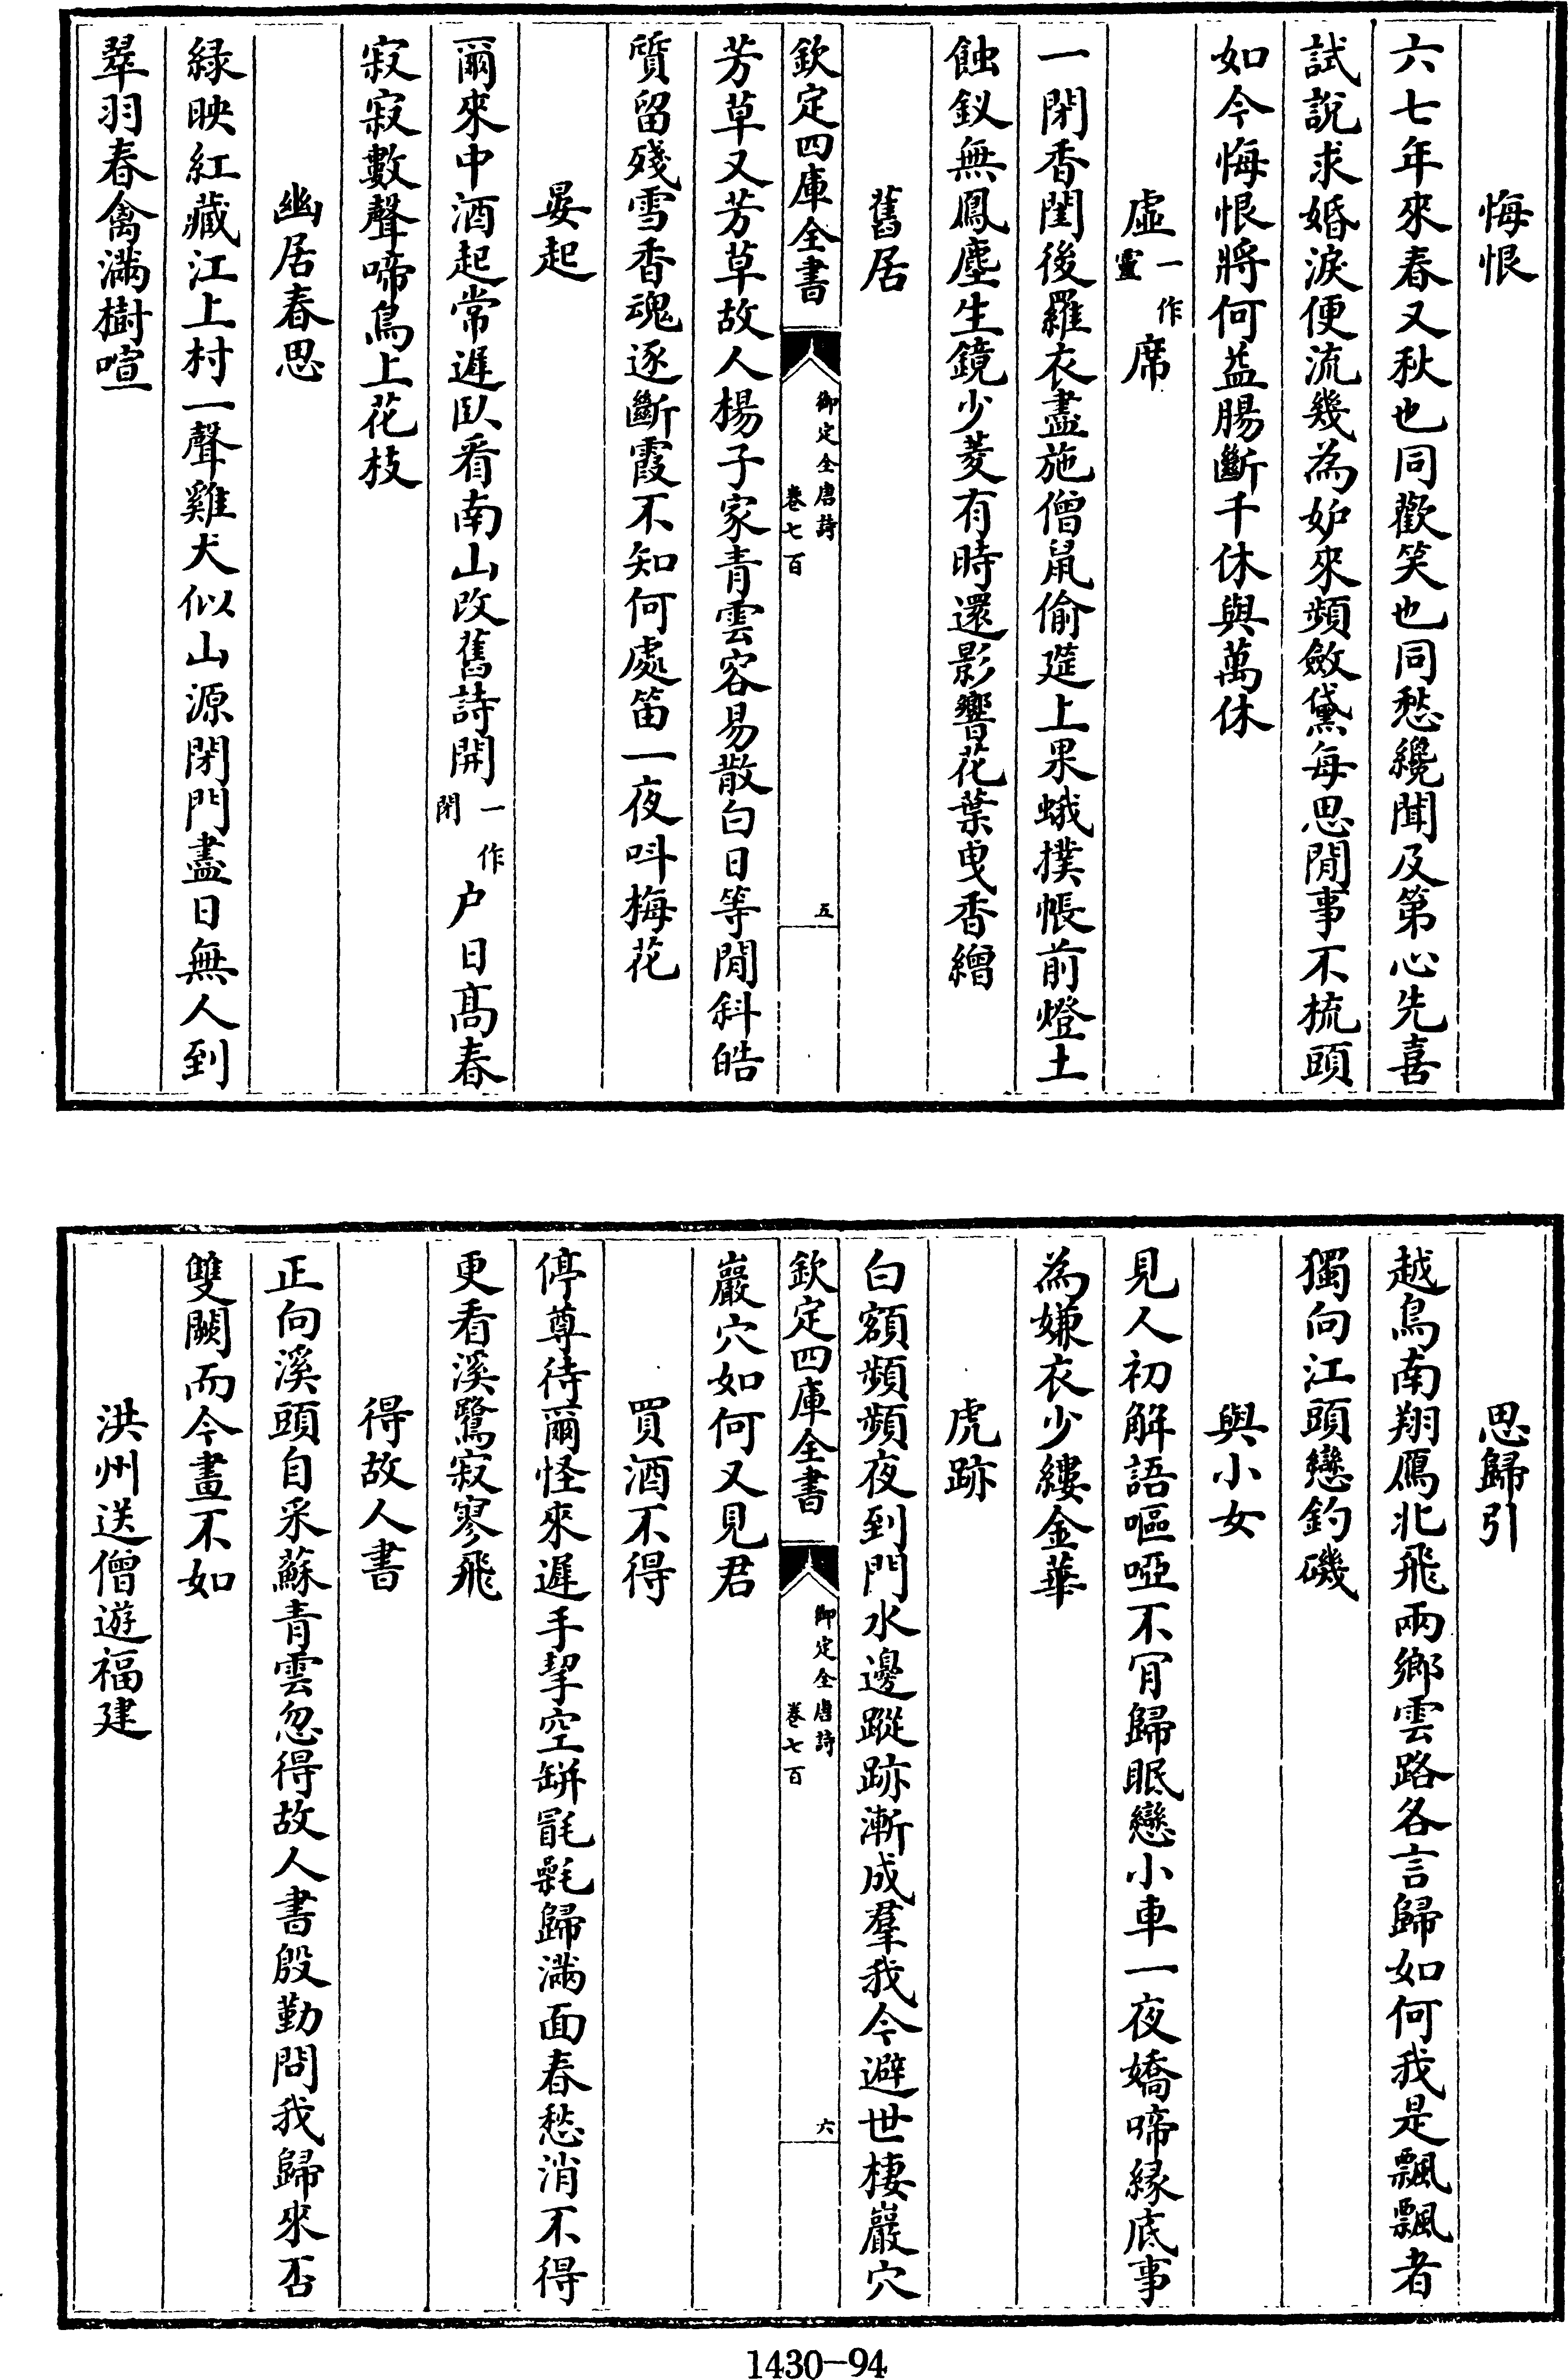 悔恨
六七年來春又秋也同歡笑也同愁纔聞及第心先喜
試說求婚淚便流幾為妒來頻斂黛每思閒事不梳頭
如今悔恨將何益腸斷千休與萬休
虛一作靈席
一閉香閨後羅衣盡施僧鼠偷筵上果蛾撲帳前燈土
蝕釵無鳳塵生鏡少菱有時還影響花葉曳香繒
舊居
欽定四庫全書 御定全唐詩 卷七百 五
芳草又芳草故人楊子家青雲容易散白日等閒斜皓
質留殘雪香魂逐斷霞不知何處笛一夜呌梅花
晏起
爾來中酒起常遲臥看南山改舊詩開一作閉户日高春
寂寂數聲啼鳥上花枝
幽居春思
緑映紅藏江上村一聲雞犬似山源閉門盡日無人到
翠羽春禽滿樹喧
思歸引
越鳥南翔鴈北飛兩鄉雲路各言歸如何我是飄飄者
獨向江頭戀釣磯
與小女
見人初解語嘔啞不肎歸眠戀小車一夜嬌啼緣底事
為嫌衣少縷金華
虎跡
白額頻頻夜到門水邊蹤跡漸成羣我今避世棲巖穴
欽定四庫全書 御定全唐詩 卷七百 六
巖穴如何又見君
買酒不得
停尊待爾怪來遲手挈空缾毷氉歸滿面春愁消不得
更看溪鷺寂寥飛
得故人書
正向溪頭自采蘇青雲忽得故人書殷勤問我歸來否
雙闕而今畫不如
洪州送僧遊福建
1430-94